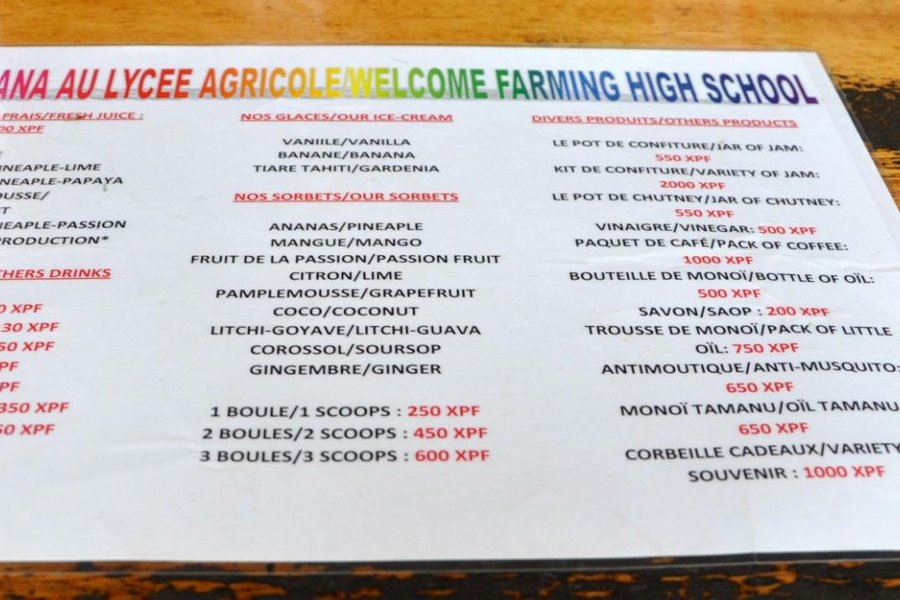 ANA AU LYCEE AGRICOLE/WELCOME FARMING HIGH SCHOOL
FRAIS/FRESH JUICE :
00 XPF
INEAPLE-LIME
INEAPLE-PAPAYA
OUSSE/
IEAPLE-PASSION
PRODUCTION*
THERS DRINKS
0 XPF
130 XPF
50 XPF
PF
PF
350 XPF
50 XPF
NOS GLACES/OUR ICE-CREAM
VANIILE/VANILLA
BANANE/BANANA
TIARE TAHITI/GARDENIA
NOS SORBETS/OUR SORBETS
ANANAS/PINEAPLE
MANGUE/MANGO
FRUIT DE LA PASSION/PASSION FRUIT
CITRON/LIME
PAMPLEMOUSSE/GRAPEFRUIT
COCO/COCONUT
LITCHI-GOYAVE/LITCHI-GUAVA
COROSSOL/SOURSOP
GINGEMBRE/GINGER
1 BOULE/1 SCOOPS : 250 XPF
2 BOULES/2 SCOOPS : 450 XPF
3 BOULES/3 SCOOPS : 600 XPF
DIVERS PRODUITS/OTHERS PRODUCTS
LE POT DE CONFITURE/JAR OF JAM:
550 XPF
KIT DE CONFITURE/VARIETY OF JAM:
2000 XPF
LE POT DE CHUTNEY/JAR OF CHUTNEY:
550 XPF
VINAIGRE/VINEGAR: 500 XPF
PAQUET DE CAFÉ/PACK OF COFFEE:
1000 XPF
BOUTEILLE DE MONOÏ/BOTTLE OF OÏL:
500 XPF
SAVON/SAOP : 200 XPF
TROUSSE DE MONOÏ/PACK OF LITTLE
OÏL: 750 XPF
ANTIMOUTIQUE/ANTI-MUSQUITO:
650 XPF
MONOÏ TAMANU/OÏL TAMANU
650 XPF
CORBEILLE CADEAUX/VARIETY
SOUVENIR : 1000 XPF